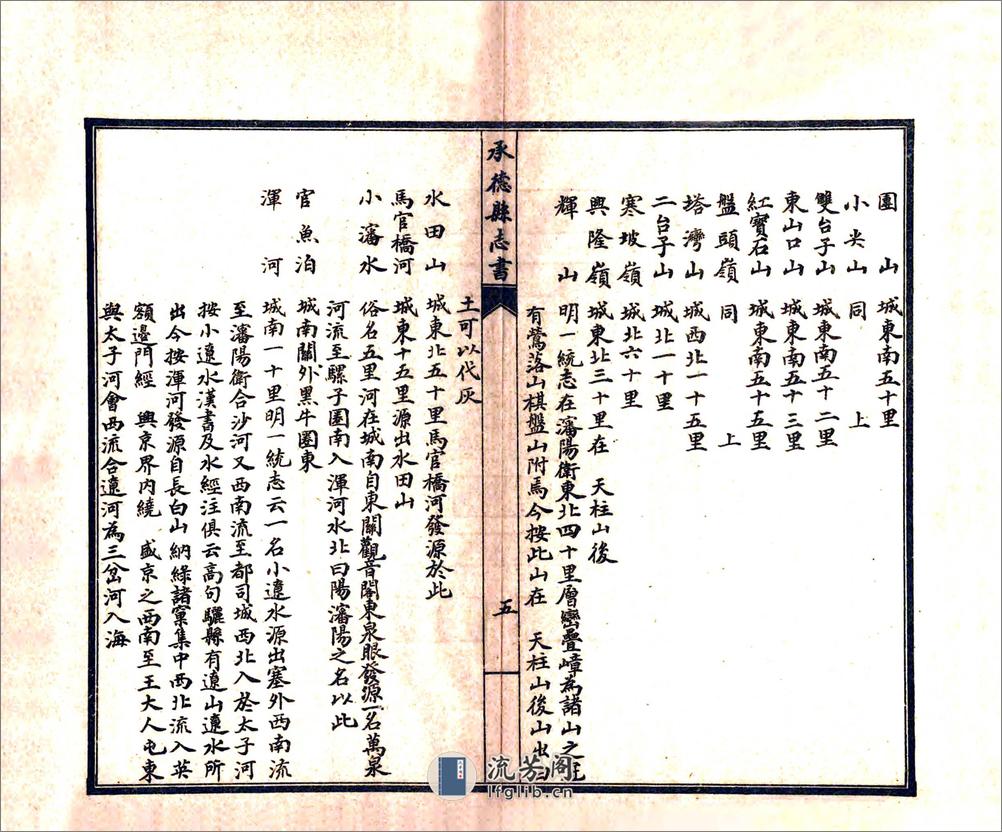 團山 城東南五十里
小尖山 同上
雙台子山 城東南五十二里
東山口山 城東南五十三里
紅寶石山 城東南五十五里
盤頭嶺 同上
塔灣山 城西北一十五里
二台子山 城北一十里
寒坡嶺 城北六十里
興隆嶺 城東北三十里在 天柱山後
輝山 明一統志在瀋陽衛東北四十里層巒疊嶂為諸山之
有鶯落山棋盤山附焉今按此山在 天柱山後山出
承德縣志書
五
土可以代灰
水田山 城東北五十里馬官橋河發源於此
馬官橋河 城東十五里源出水田山
小瀋水 俗名五里河在城南自東關觀音閣東泉眼發源一名萬泉
河流至騾子圈南入渾河水北曰陽瀋陽之名以此
官魚泊 城南關外黑牛圈東
渾河 城南一十里明一統志云一名小遼水源出塞外西南流
至瀋陽衛合沙河又西南流至都司城西北入於太子河
按小遼水漢書及水經注俱云高句驪縣有遼山遼水所
出今按渾河發源自長白山納綠諸窩集中西北流入英
額邊門經 興京界內繞 盛京之西南至王大人屯東
與太子河會西流合遼河為三岔河入海
流芳阁
lfglib.cn